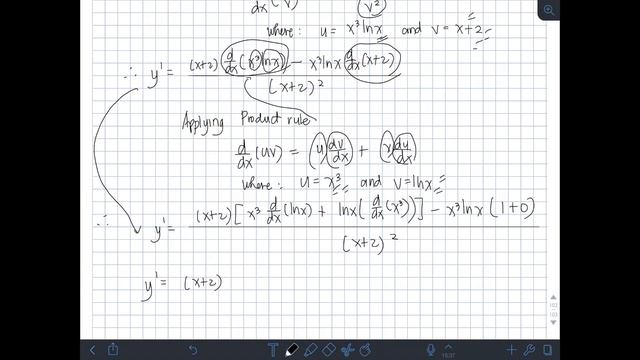 d/dx (v) v²
where: u = x³ lnx and v = x+2
∴ y' = ((x+2) (d/dx (x³ lnx)) − x³lnx (d/dx (x+2))) / (x+2)²
Applying Product rule
d/dx (uv) = (u)(dv/dx) + (v)(du/dx)
where: u = x³ and v = lnx
∴ y' = ((x+2) [x³ d/dx (lnx) + lnx (d/dx (x³))] − x³lnx (1+0)) / (x+2)²
y' = (x+2)